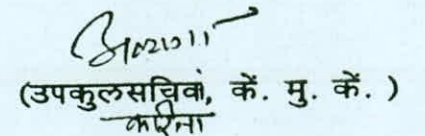 (उपकुलसचिव, कें. मु. कें. )
करिता